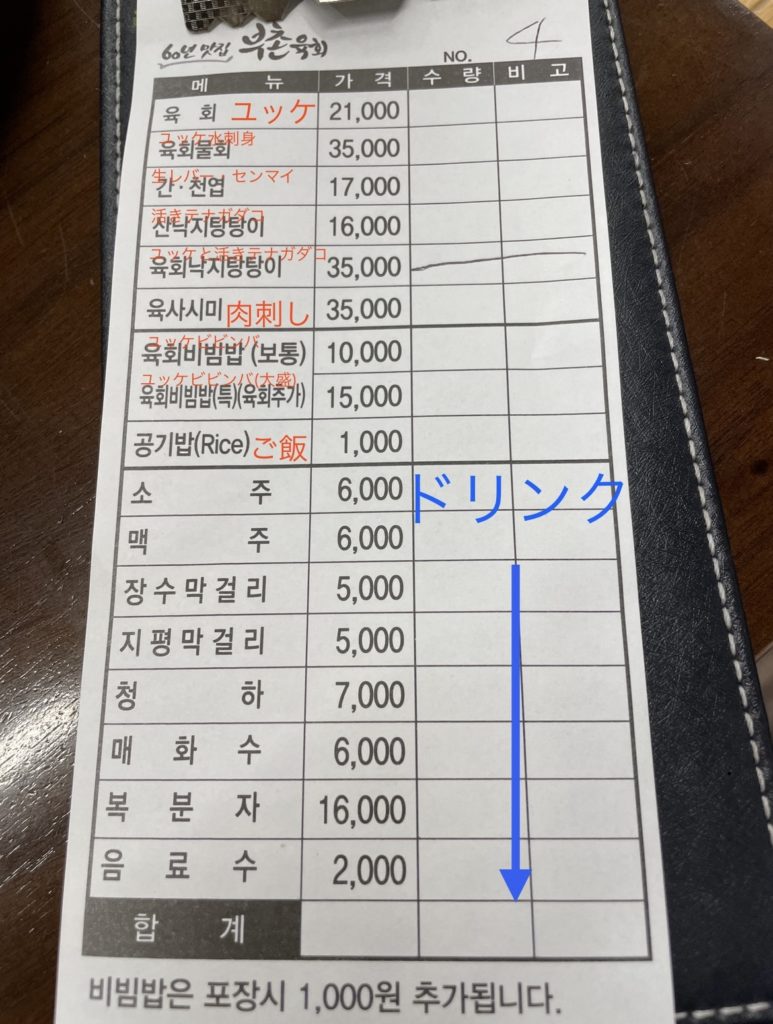 60년 맛집 부촌육회
NO. 4
메 뉴 가 격 수 량 비 고
육 회 ユッケ 21,000
ユッケ水刺身
육회물회 35,000
生レバー・センマイ
간·천엽 17,000
活きテナガダコ
산낙지탕탕이 16,000
ユッケと活きテナガダコ
육회낙지탕탕이 35,000
육사시미 肉刺し 35,000
ユッケビビンバ
육회비빔밥 (보통) 10,000
ユッケビビンバ(大盛)
육회비빔밥(특)(육회추가) 15,000
공기밥(Rice) ご飯 1,000
소 주 6,000 ドリンク
맥 주 6,000
장수막걸리 5,000
지평막걸리 5,000
청 하 7,000
매 화 수 6,000
복 분 자 16,000
음 료 수 2,000
합 계
비빔밥은 포장시 1,000원 추가됩니다.